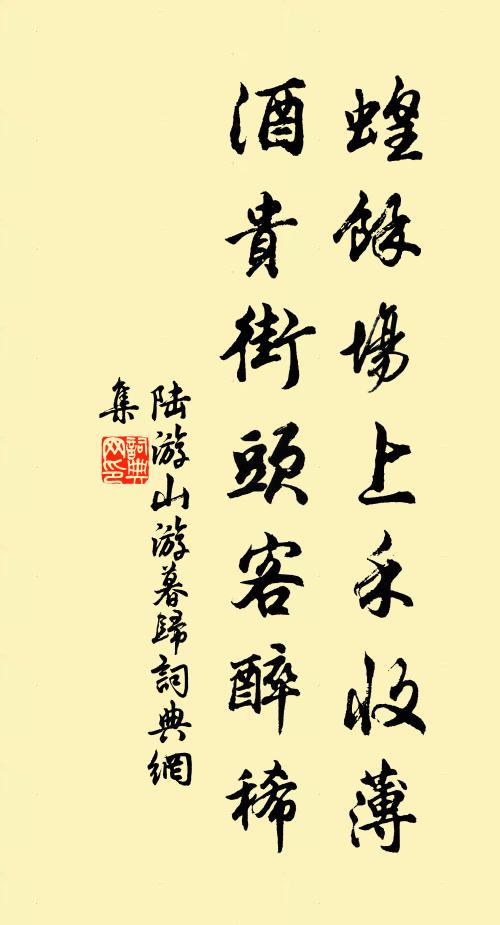 蝗餘場上禾收薄
酒貴街頭客醉稀
陆游山游暮歸詞典網
集
詞典
网印